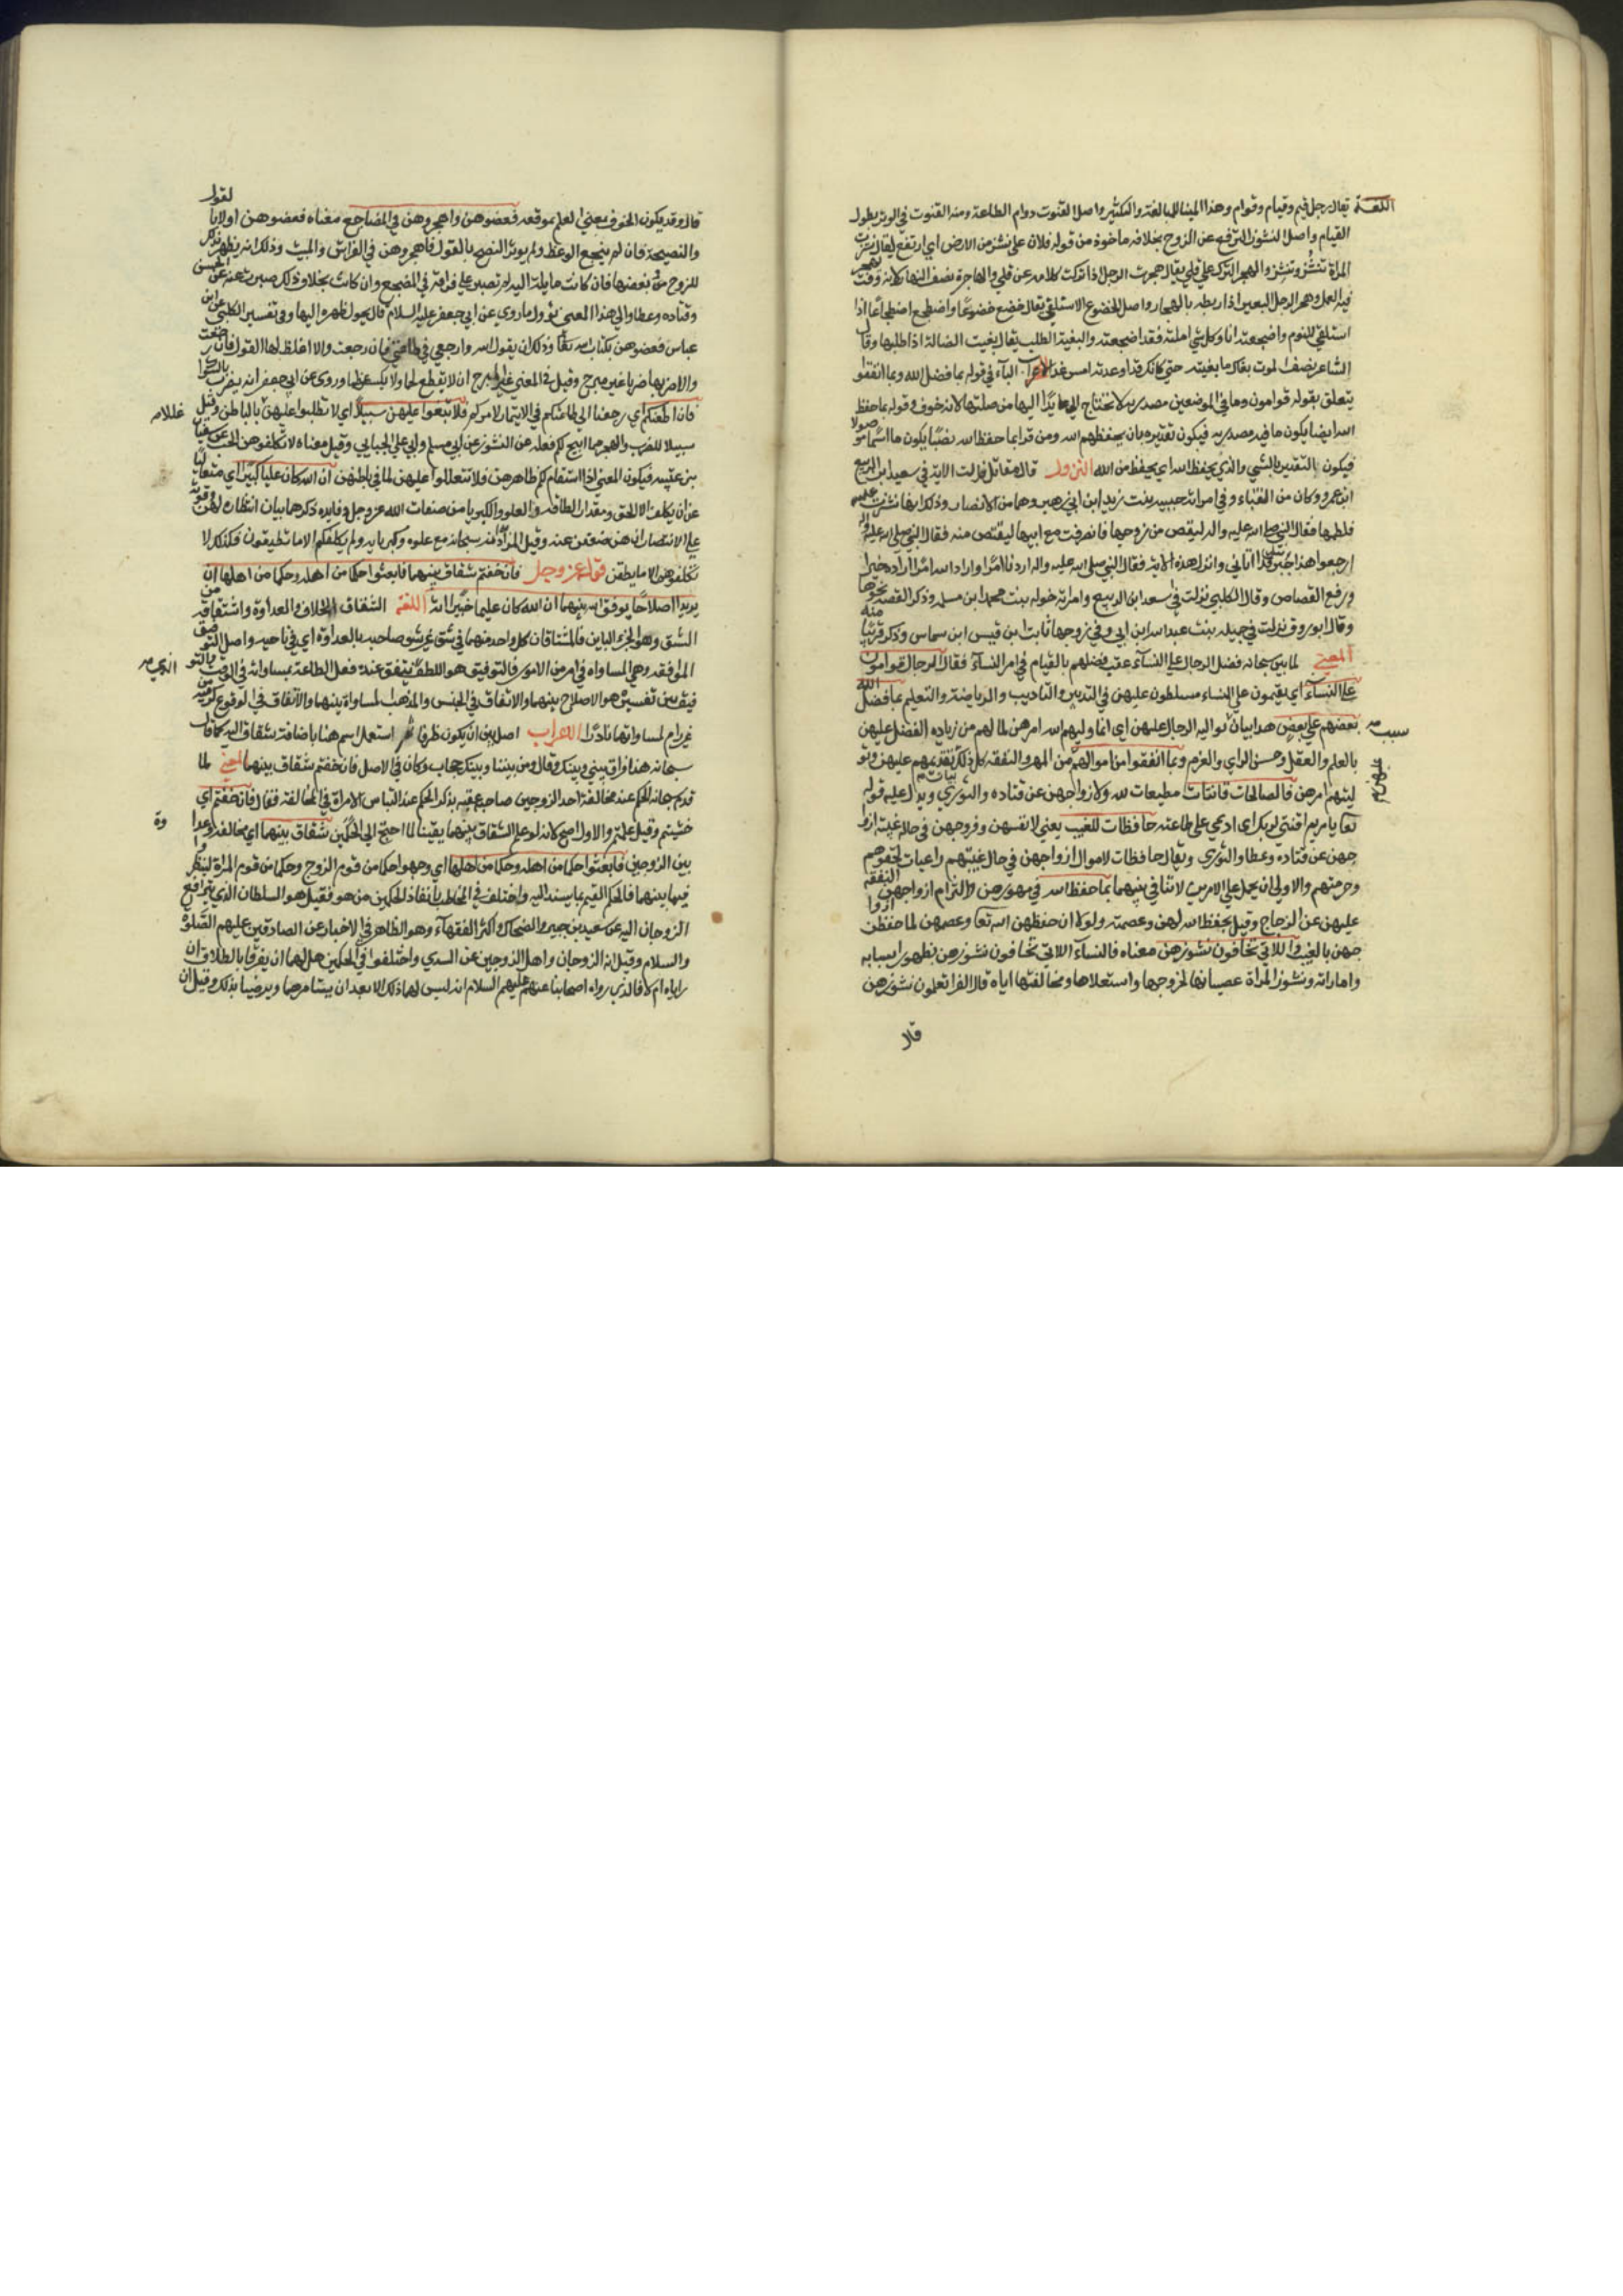 اللغة يقال رجل قيم وقيام وقوام وهذا البنا للمبالغة والتكثير واصل القنوت دوام الطاعة ومنه القنوت في الوتر بطول
القيام واصل النشوز الترفع عن الزوج بخلافه ماخوذ من قولهم فلان على نشز من الارض اي ارتفع يقال نشزت
المراة تنشز وتنشز والهجر الترك على قلي يقال هجرت الرجل اذا تركت كلامه عن قلي والهاجرة نصف النهار لانه وقت يهجر
فيه العمل وهجر الرجل البعير اذا ربطه بالهجار واصل الضجوع الاستلقي يقال ضجع ضجوعا واضطجع اضطجاعا اذا
استلقي للنوم واضجعته انا وكل شي املته فقد اضجعته والبغية الطلب يقال بغيت الضالة اذا طلبها وقال
الشاعر يصف الموت بغاك ما بغيته حتي كانك قد اوعدته امس غد الاعراب الباء في قوله بما فضل الله وبما انفقوا
يتعلق بقوله قوامون وما في الموضعين مصدريه لا تحتاج الي عايد اليها من صلتها لانه حروف وقوله بما حفظ
الله ايضا يكون ما فيه مصدريه فيكون تقديره بان يحفظهم الله ومن قرا بما حفظ الله نصبا يكون ما اسما موصولا
فيكون التقدير بالشي والذي يحفظ الله اي يحفظ من الله النزول قال مقاتل نزلت الاية في سعيد ابن الربيع
ابن عمرو وكان من النقباء وفي امراته حبيبه بنت زيد ابن ابي زهير وهما من الانصار وذلك انها نشزت عليه
فلطمها فقال النبي صلى الله عليه واله ليقص من زوجها فانصرفت مع ابيها ليقتص منه فقال النبي صلى الله عليه واله
ارجعوا هذا جبرئيل اتاني وانزل هذه الاية فقال النبي صلى الله عليه واله اردنا امرا واراد الله امرا اراده خير
ورفع القصاص وقال الكلبي نزلت في سعد ابن الربيع وامراته خوله بنت محمد ابن مسلمه وذكر القصه نحوها
وقال ابو روق نزلت في جميله بنت عبد الله ابن ابي وفي زوجها ثابت ابن قيس ابن سماس وذكر قريبا منه
المعني لما بين سبحانه فضل الرجال على النساء عقبه بفضلهم بالقيام في امر النساء فقال الرجال قوامون
على النساء اي يقيمون على النساء مسلطون عليهن في التدبير والتاديب والرياضة والتعليم بما فضل الله
بعضهم على بعض هذا بيان تولية الرجال عليهن اي انما وليهم الله امرهن لما لهم من زياده الفضل عليهن
سبب
بالعلم والعقل وحسن الراي والعزم وبما انفقوا من اموالهم من المهر والنفقه كل ذلك بيان تقديمهم عليهن وتو
ليتهم امرهن فالصالحات قانتات مطيعات لله ولازواجهن عن قتاده والثوري ويدل عليه قوله
تعا يا مريم اقنتي لربك اي ادمي على طاعته حافظات للغيب يعني لانفسهن وفروجهن في حال غيبة ازوا
جهن عن قتاده وعطا والثوري ويقال حافظات لاموال ازواجهن في حال غيبتهم راعيات لحقوقهم
وحرمتهم والاولى ان يحمل على الامرين لا تنافي بينهما بما حفظ الله في مهورهن والتزام ازواجهن النفقه
عليهن عن الزجاج وقيل بحفظ الله لهن وعصمته ولولا ان حفظهن الله تعا وعصمهن لما حفظن ازوا
جهن بالغيب واللاتي تخافون نشوزهن معناه فالنساء اللاتي تخافون نشوزهن بظهور اسبابه
واماراته ونشوز المراة عصيانها لزوجها واستعلاها ومخالفتها اياه قال الفرا تعلمون نشوزهن
قال
قال وقد يكون الخوف بمعني العلم بموقعه فعضوهن واهجروهن في المضاجع معناه فعضوهن اولا بالقول
والنصيحة فان لم ينجع الوعظ ولم يوثر النصح بالقول فاهجروهن في الفراش والمبيت وذلك انه يظهر بذلك
للزوج من بغضها فان كانت مايلة اليه لم تصبر على فراقه في المضجع وان كانت بخلاف ذلك صبرت عنه عن الحسن
وقتاده وعطا والي هذا المعني يول ما روي عن ابي جعفر عليه السلام قال يحول ظهره اليها وفي تفسير الكلبي عن ابن
عباس فعضوهن بكتاب الله تعا وذلك ان يقول الله وارجعي في طاعتي فان رجعت والا اغلظ لها القول فان رجعت
والا ضربها ضربا غير مبرح وقيل في المعني غير المبرح ان لا يقطع لحما ولا يكسر عظما وروي عن ابي جعفر انه يضرب بالسواك
فان اطعنكم اي رجعنا الي طاعتكم في الايتمار لامركم فلا تبغوا عليهن سبيلا اي لا تطلبوا عليهن بالباطل وقيل
سبيلا للضرب والهجر مما ابيح لكم فعله عن النشوز عن ابي مسلم وابي علي الجبايي وقيل معناه لا تكلفوهن الحب عن سفيان
بن عتيبه فيكون المعني اذا استقام لكم ظاهرهن فلا تتعللوا عليهن لما في باطنهن ان الله كان عليا كبيرا اي متعاليا
عن ان يكلف الا الحق ومقدار الطاقه والعلو والكبريا من صفات الله عز وجل وفايده ذكرهما بيان انتصاره لهن وقوته
على الانتصار ان هن ضعفن عنه وقيل المراد انه سبحانه مع علوه وكبريايه ولم يكلفكم الا ما تطيقون فكذلك لا
تكلفوهن الا ما يطقن قوله عز وجل فان خفتم شقاق بينهما فابعثوا حكما من اهله وحكما من اهلها ان
يريدا اصلاحا يوفق الله بينهما ان الله كان عليما خبيرا اللغة الشقاق الخلاف والعداوة واشتقاقه من
الشق وهو الجزء الباين فالمتشاقان كل واحد منهما في شق غير شق صاحبه بالعداوه اي في ناحيه واصل التوفيق
الموافقه وهي المساواه في امر من الامور فالتوفيق هو اللطف يتفق عنده فعل الطاعة بمساواته في الوقت والتو
فيق بين نفسين هو الاصلاح بينهما والاتفاق في الجنس والمذهب المساواة بينهما والاتفاق في الوقوع كرميه من
غير رام لمساواتهما نادرا الاعراب اصل بين ان يكون ظرفا ثم استعمل اسم هنا باضافة شقاق اليه كما قال
سبحانه هذا فراق بيني وبينك وقال ومن بيننا وبينك حجاب وكان في الاصل فان خفتم شقاق بينهما المعني لما
قدم سبحانه الحكم عند مخالفة احد الزوجين صاحبه عقبه بذكر الحكم عند التباس الامراة في المخالفة فقال فان خفتم اي
خشيتم وقيل علمتم والاول اصح لانه لو علم الشقاق بينهما يقينا لما احتيج الي الحكمين شقاق بينهما اي مخالفه وعدا
وة
بين الزوجين فابعثوا حكما من اهله وحكما من اهلها اي وجهوا حكما من قوم الزوج وحكما من قوم المراة لينظر
فيما بينهما فالحكم القيم بما يسند اليه واختلف في المخاطب بانفاذ الحكمين من هو فقيل هو السلطان الذي يترافع
الزوجان اليه عن سعيد بن جبير والضحاك واكثر الفقهاء وهو الظاهر في الاخبار عن الصادقين عليهم الصلوة
والسلام وقيل انه الزوجان واهل الزوجين عن السدي واختلفوا في الحكمين هل لهما ان يفرقا بالطلاق ان
راياه ام لا فالذي رواه اصحابنا عنهم عليهم السلام انه ليس لهما ذلك الا بعد ان يستامرهما ويرضيا بذلك وقيل ان